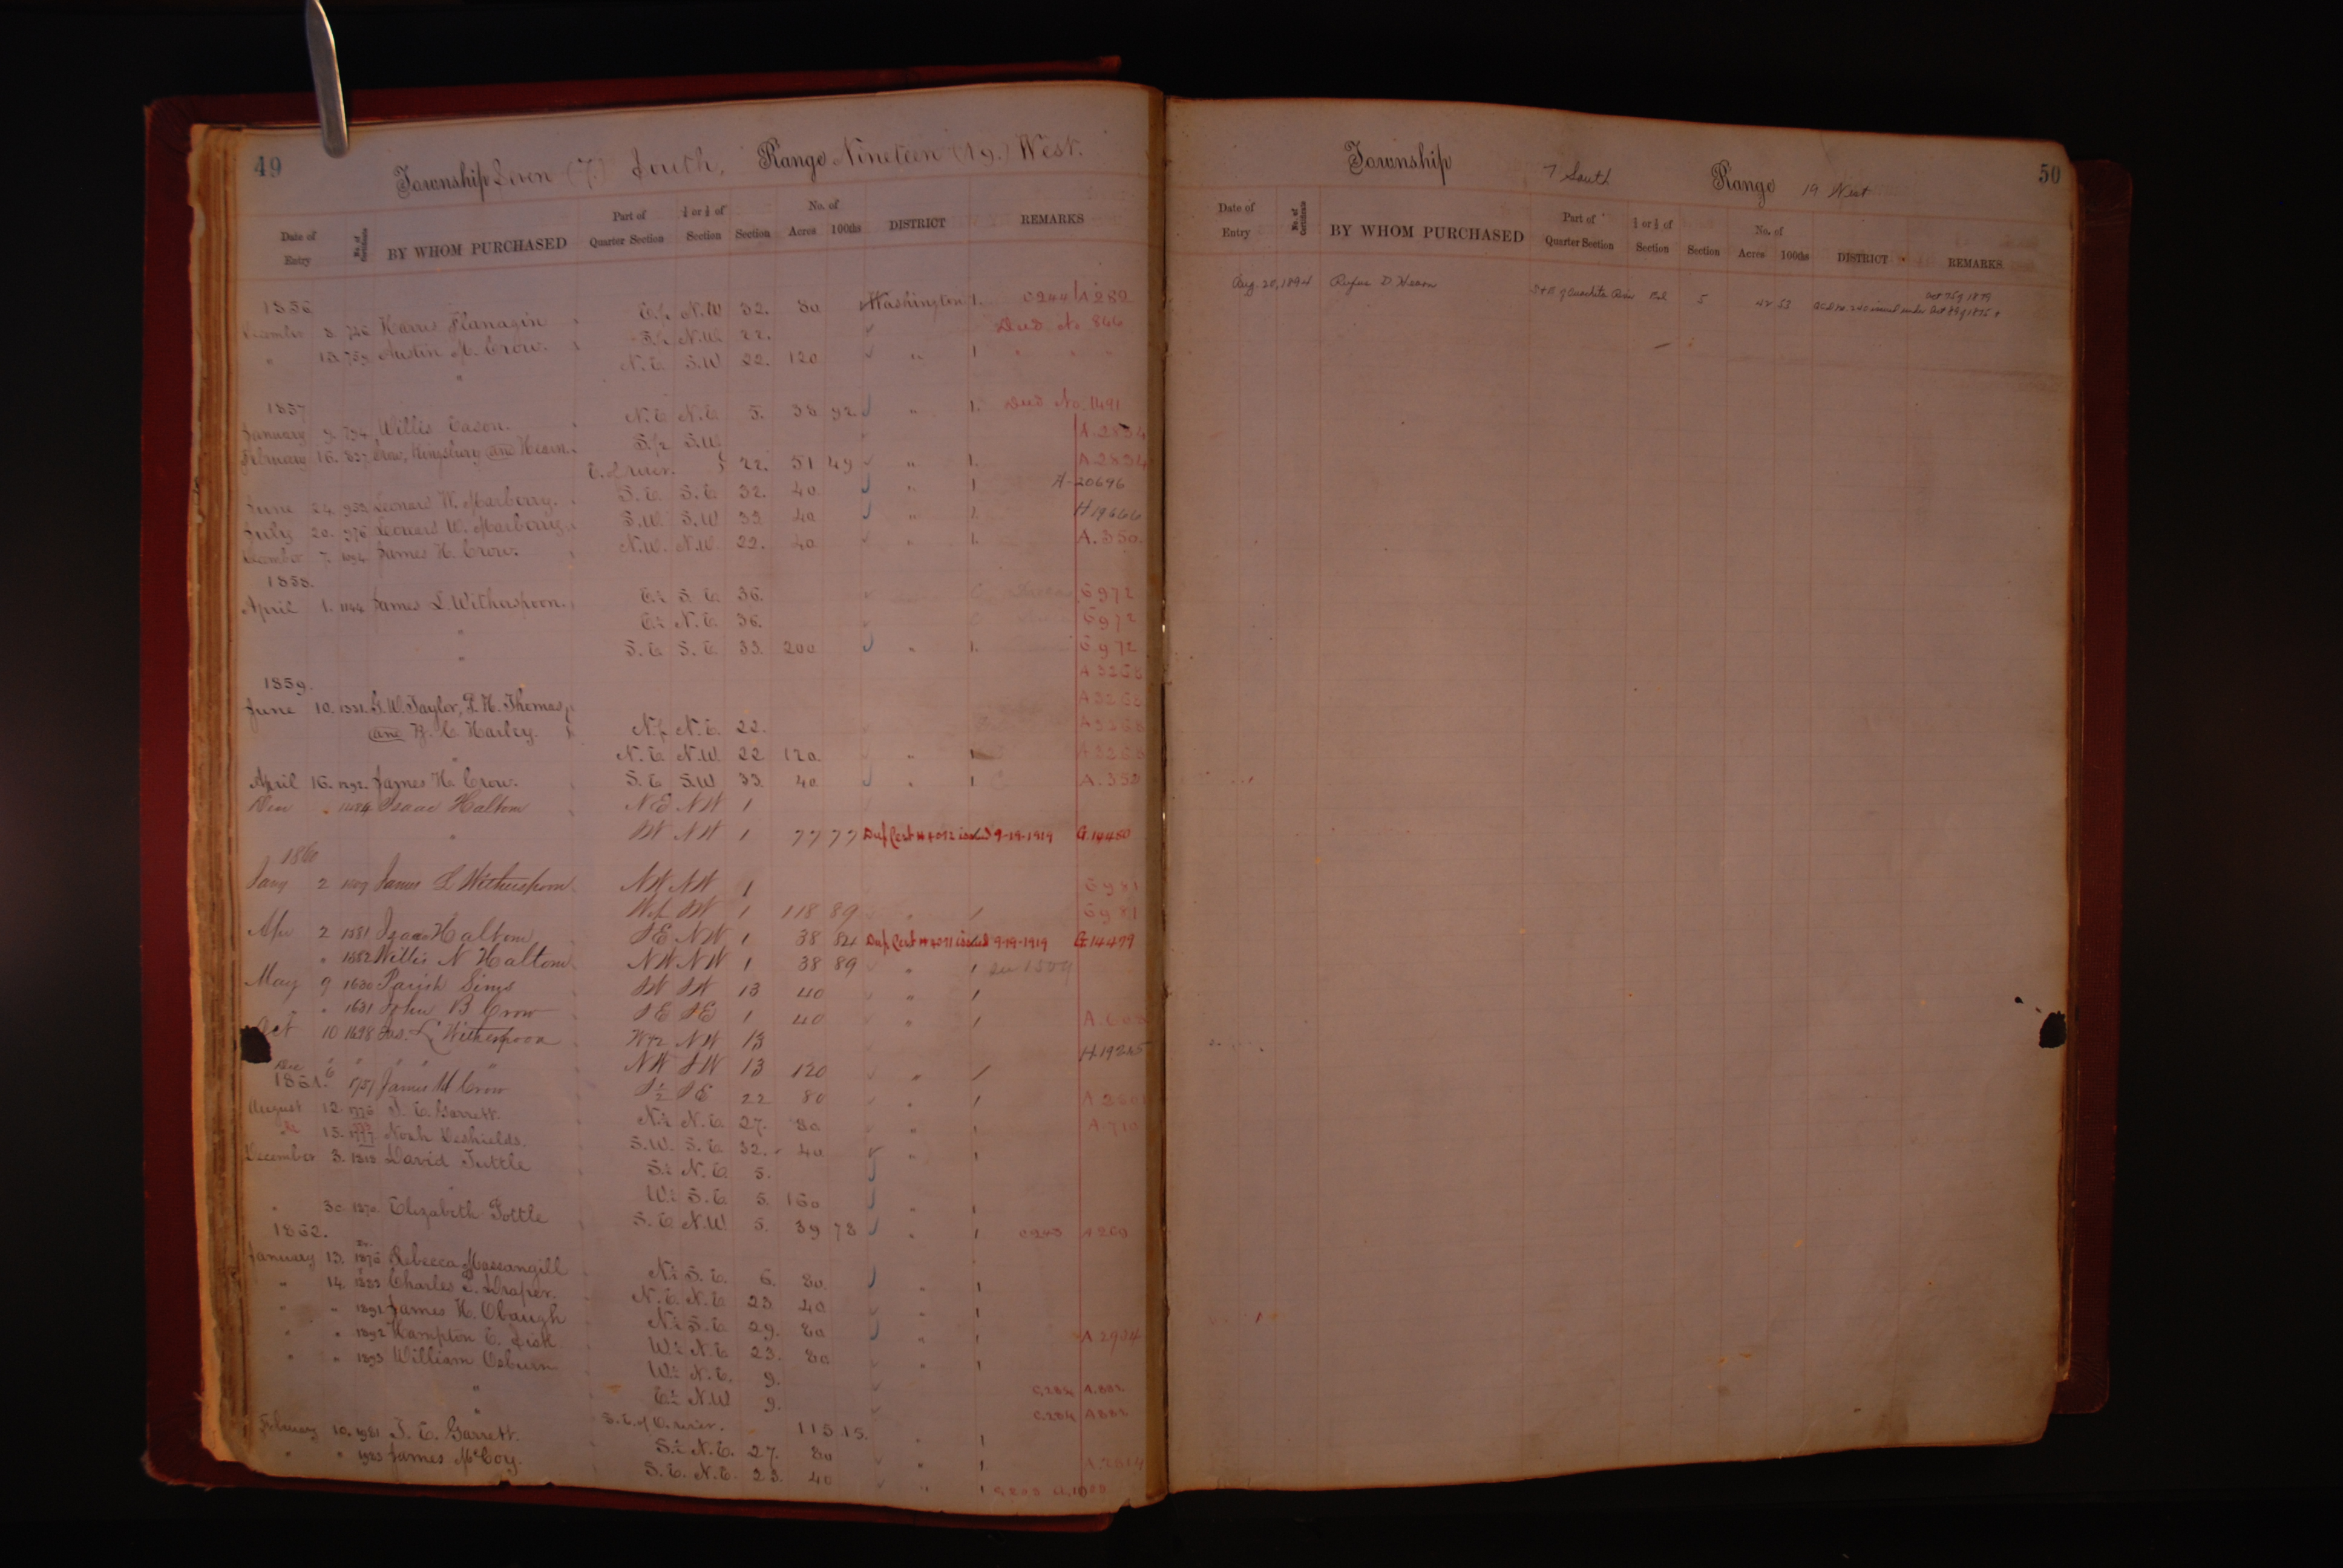 49
Township Seven (7.) South, Range Nineteen (19.) West.
Date of Entry No. of Certificate BY WHOM PURCHASED Part of Quarter Section ½ or ¼ of Section Section No. of Acres 100ths DISTRICT REMARKS
1856
December 3. 726 Harris Flanagin E./2 N.W 32. 80 Washington 1. C244 A 282
" 15. 759 Austin M. Crow. S./2 N.W. 22. Deed No 866
" N.E. S.W 22. 120 " 1 " " "
1857
January 9. 794 Willis Eason. N.E N.E. 5. 38 92 " 1. Deed No. 1491
February 16. 837 Crow, Kingsbury and Hearn. S./2 S.W. A.2834
E. of river. 22. 51 49 " 1. A.2834
June 24. 952 Leonard W. Marberry. S.E. S.E 32. 40 " 1 A-20696
July 20. 976 Leonard W. Marberry. S.W. S.W 33 40 " 1. H19666
December 7. 1094 James H. Crow. N.W. N.W 22. 40 " 1. A.350.
1858.
April 1. 1144 James L. Witherspoon. E.½ S.E. 36. 6972
" E.½ N.E. 36. 6972
" S.E S.E. 33. 200 " 1. 6972
A 3268
1859.
June 10. 1331. G.W. Taylor, L.H. Thomas, A3268
and B. C. Harley. N./2 N.E. 22. A3268
" N.E N.W. 22 120. " 1 A3268
April 16. 1292. James H. Crow. S.E S.W 33. 40 " 1 A.350
Dec 1484 Isaac Haltom NE NW 1
" SW NW 1 77 77 Dup Cert # 4012 issued 9-19-1919 G.14480
1860
Jany 2 1509 James L Witherspoon NW NW 1 6981
W/2 SW 1 118 89 " 1 6981
Apr 2 1581 Isaac Haltom SE NW 1 38 84 Dup Cert # 4011 issued 9-19-1919 G.14479
" 1582 Willis N Haltom NW NW 1 38 89 " 1 See 1509
May 9 1630 Parish Sims SW SW 13 40 " 1
" " 1631 John B Crow SE SE 1 40 " 1
Oct 10 1698 Jas. L Witherspoon W½ NW 13 H.19265
" " " " NW SW 13 120 " 1
Dec 6 1751 James M Crow S½ SE 22 80 " 1
1861.
August 12. 1776 J. E. Garrett. N.½ N.E. 27. 80 " 1 A.710
15. 1777 Noah Deshields. S.W. S.E. 32. 40 " 1
December 3. 1813 David Tuttle S.½ N.E. 5.
" W.½ S.E 5. 160 " 1
" 30 1870. Elizabeth Tottle S.E N.W 5. 39 78 " 1 C243 A 269
1862.
January 13. 1876 Rebecca Massangill N.½ S.E. 6. 80. " 1
" 14. 1883 Charles P. Draper. N.E. N.E 23 40 " 1
" " 1891 James H. Obaugh N.½ S.E 29. 80 " 1 A 2934
" " 1892 Hampton E. Lish. W.½ N.E 23. 80 " 1
" " 1893 William Osburn. W.½ N.E. 9. C.284 A.882
" E.½ N.W 9. C.284 A882
S.E. of O. river. 113 15. " 1
February 10. 1981 J. E. Garrett. S.½ N.E. 27. 80 " 1. A.2814
" " 1983 James McCoy. S.E. N.E. 23. 40 " 1
50
Township 7 South Range 19 West
Date of Entry No. of Certificate BY WHOM PURCHASED Part of Quarter Section ½ or ¼ of Section Section No. of Acres 100ths DISTRICT REMARKS
Aug. 20, 1894 Rufus D Hearn of Ouachita River 5 42 53